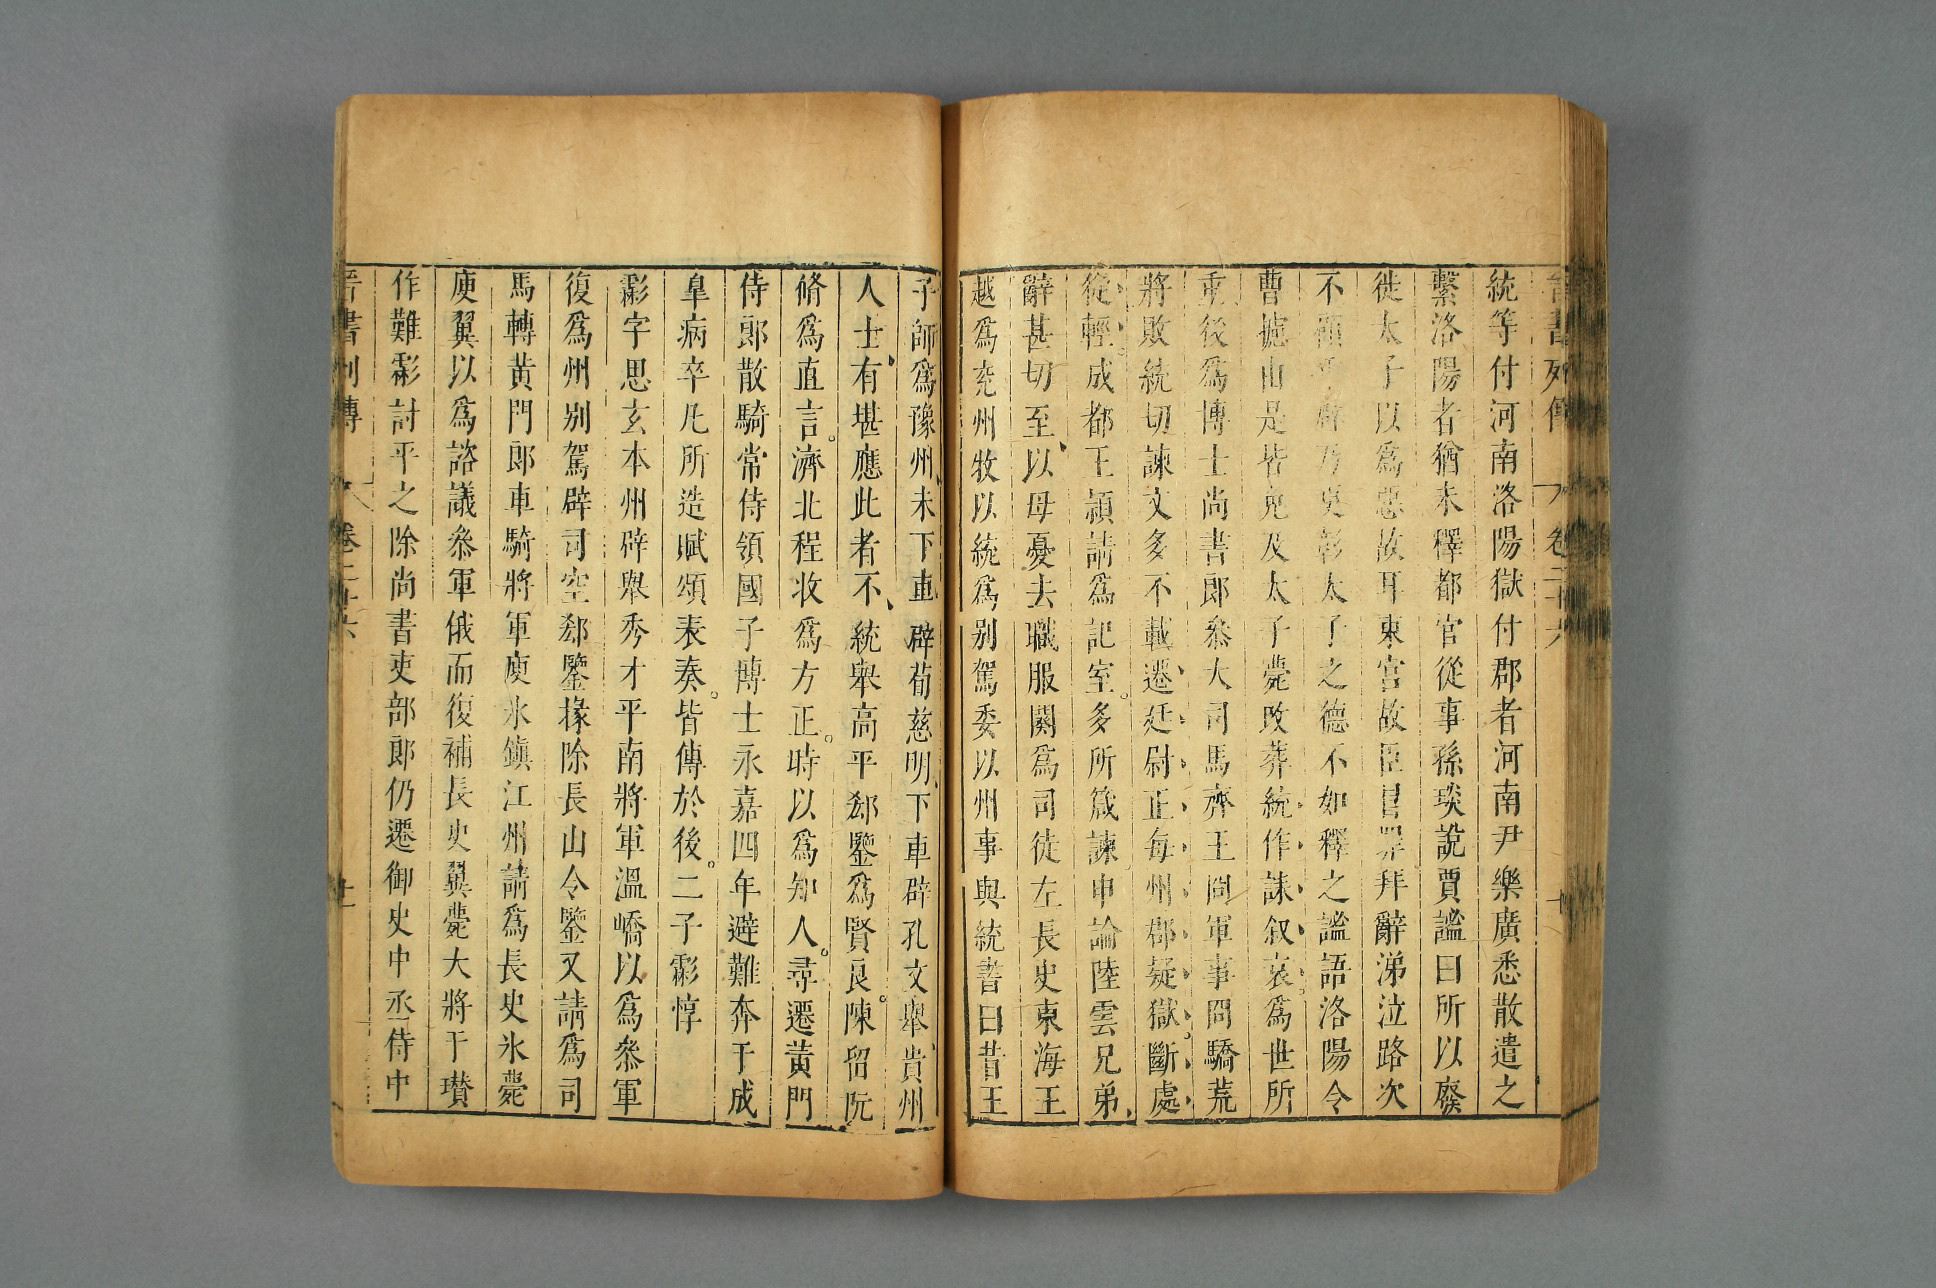 晉書列傳 卷二十六 十
統等付河南洛陽獄付郡者河南尹樂廣悉散遣之
繫洛陽者猶未釋都官從事孫琰說賈謐曰所以廢
徙太子以爲惡故耳東宮故臣冒罪拜辭涕泣路次
不顧重辟乃更彰太子之德不如釋之謐語洛陽令
曹攄由是皆免及太子薨改葬統作誄叙哀爲世所
重後爲博士尚書郎叅大司馬齊王冏軍事冏驕荒
將敗統切諫文多不載遷廷尉正每州郡疑獄斷處
從輕成都王頴請爲記室多所箴諫申論陸雲兄弟
辭甚切至以母憂去職服闋爲司徒左長史東海王
越爲兖州牧以統爲别駕委以州事與統書曰昔王
子師爲豫州未下車辟荀慈明下車辟孔文舉貴州
人士有堪應此者不統舉高平郄鑒爲賢良陳留阮
脩爲直言濟北程收爲方正時以爲知人尋遷黃門
侍郎散騎常侍領國子博士永嘉四年避難奔于成
臯病卒凡所造賦頌表奏皆傳於後二子彪惇
彪字思玄本州辟舉秀才平南將軍溫嶠以爲叅軍
復爲州别駕辟司空郄鑒掾除長山令鑒又請爲司
馬轉黃門郎車騎將軍庾氷鎭江州請爲長史氷薨
庾翼以爲諮議叅軍俄而復補長史翼薨大將干瓚
作難彪討平之除尚書吏部郎仍遷御史中丞侍中
晉書列傳 卷二十六 十一